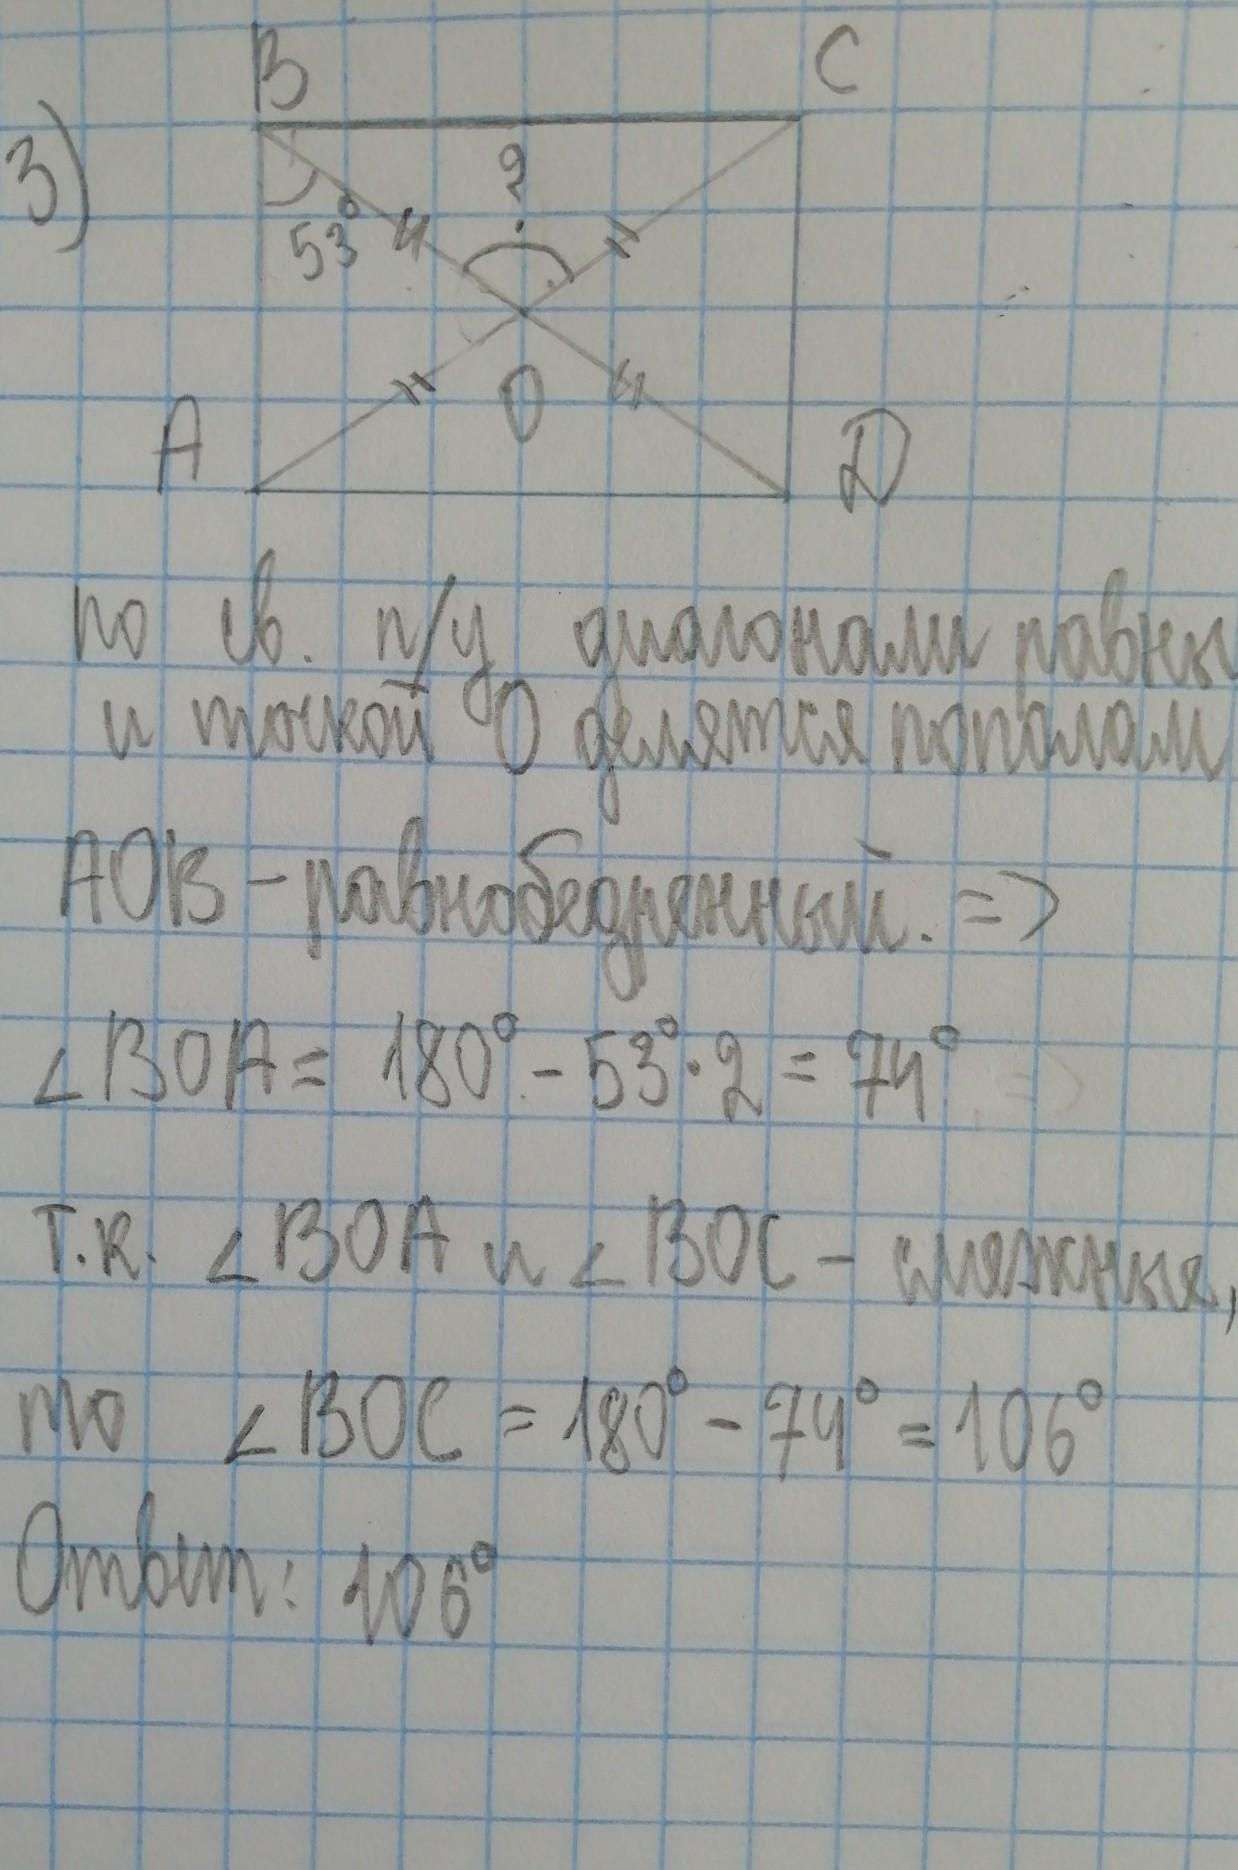 3)
B
C
?
53°
A
O
D
по св. п/у диагонали равны
и точкой O делятся пополам
AOB - равнобедренный. =>
∠BOA = 180° - 53° · 2 = 74°
т.к. ∠BOA и ∠BOC - смежные,
то ∠BOC = 180° - 74° = 106°
Ответ: 106°